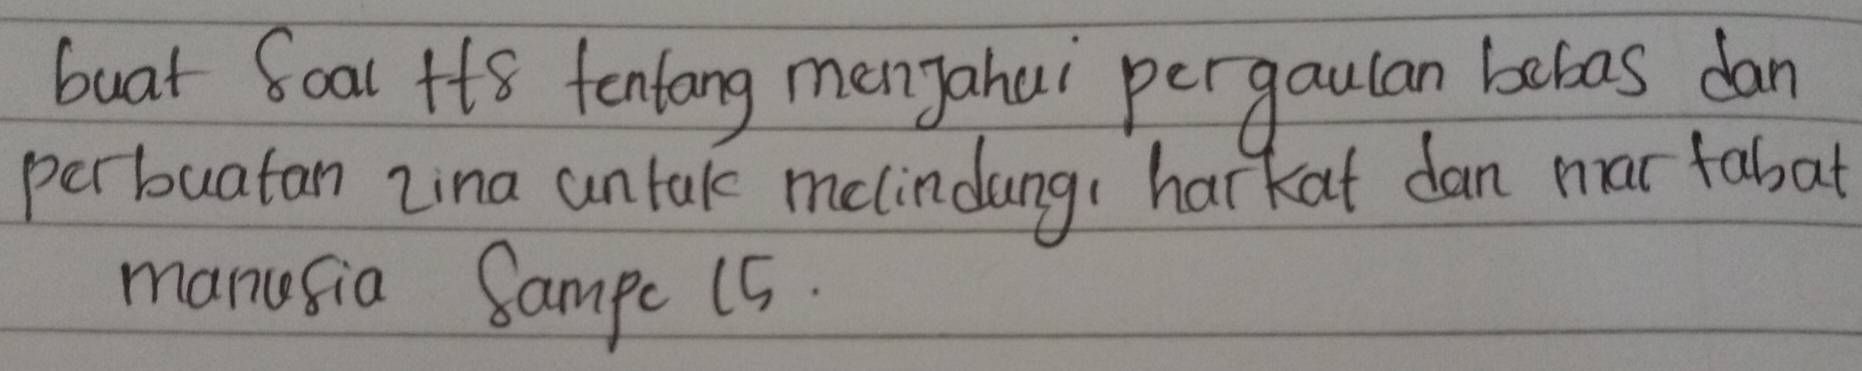 buat soal tts tentang menjahui pergaulan bebas dan
perbuatan zina untuk melindungi harkat dan martabat
manusia sampe 15.